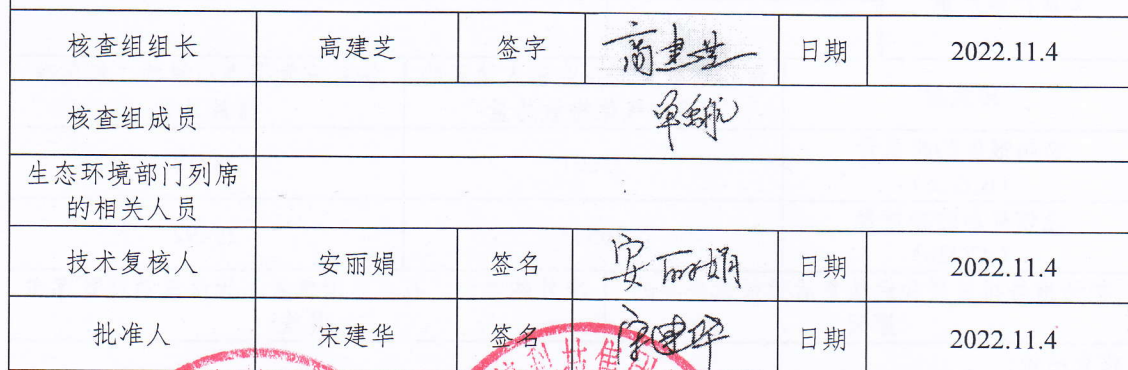 核查组组长 高建芝 签字 高建芝 日期 2022.11.4
核查组成员
生态环境部门列席
的相关人员
技术复核人 安丽娟 签名 安丽娟 日期 2022.11.4
批准人 宋建华 签名 宋建华 日期 2022.11.4